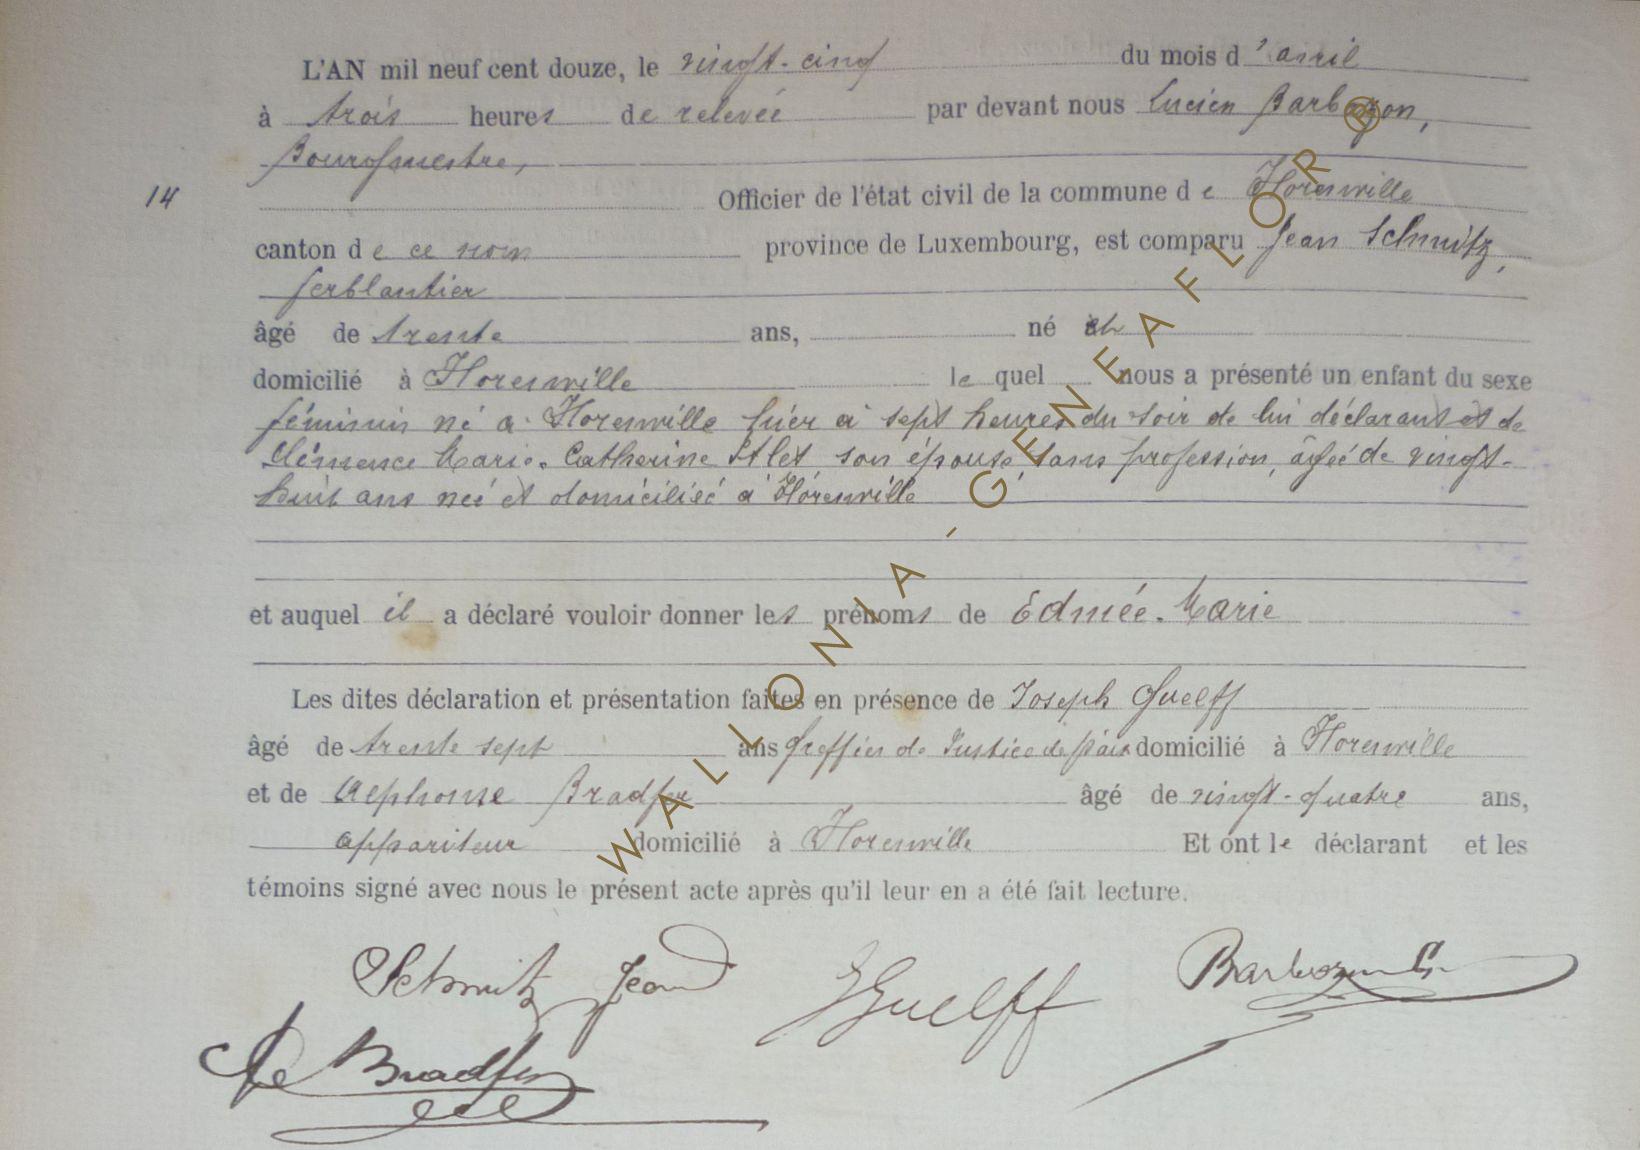 L'AN mil neuf cent douze, le vingt-cinq du mois d'avril
à trois heures de relevée par devant nous Lucien Barbazon,
Bourgmestre,
14 Officier de l'état civil de la commune de Florenville
canton de ce nom province de Luxembourg, est comparu Jean Schmitz,
ferblantier
âgé de trente ans, né
domicilié à Florenville lequel nous a présenté un enfant du sexe
féminin né à Florenville hier à sept heures du soir de lui déclarant et de
Clémence Marie-Catherine son épouse, sans profession, âgée de vingt-
huit ans née et domiciliée à Florenville
et auquel il a déclaré vouloir donner les prénoms de Edmée-Marie
Les dites déclaration et présentation faites en présence de Joseph Guelff
âgé de trente sept ans greffier de Justice de paix domicilié à Florenville
et de Alphonse Bradfer âgé de vingt-quatre ans,
appariteur domicilié à Florenville Et ont le déclarant et les
témoins signé avec nous le présent acte après qu'il leur en a été fait lecture.
Schmitz Jean JGuelff
Bradfer
WALLONIA-GENEAFLOR®